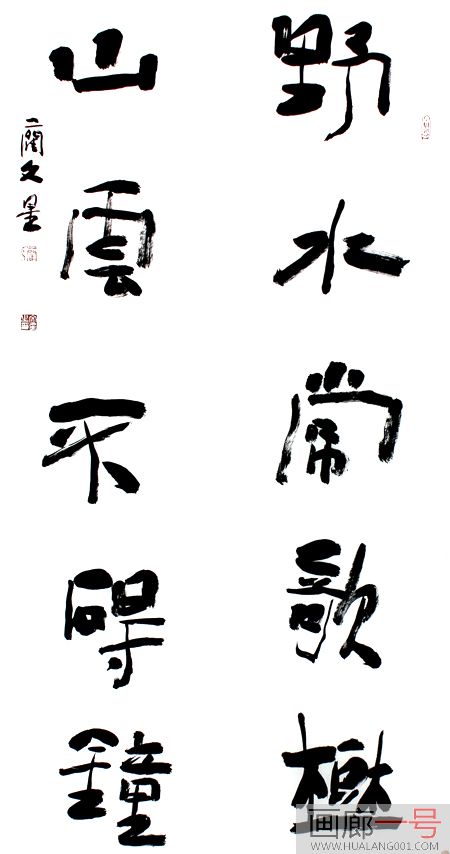 野水常歌
山雲不礙鐘
文星
画廊一号
WWW.HUALANG001.COM